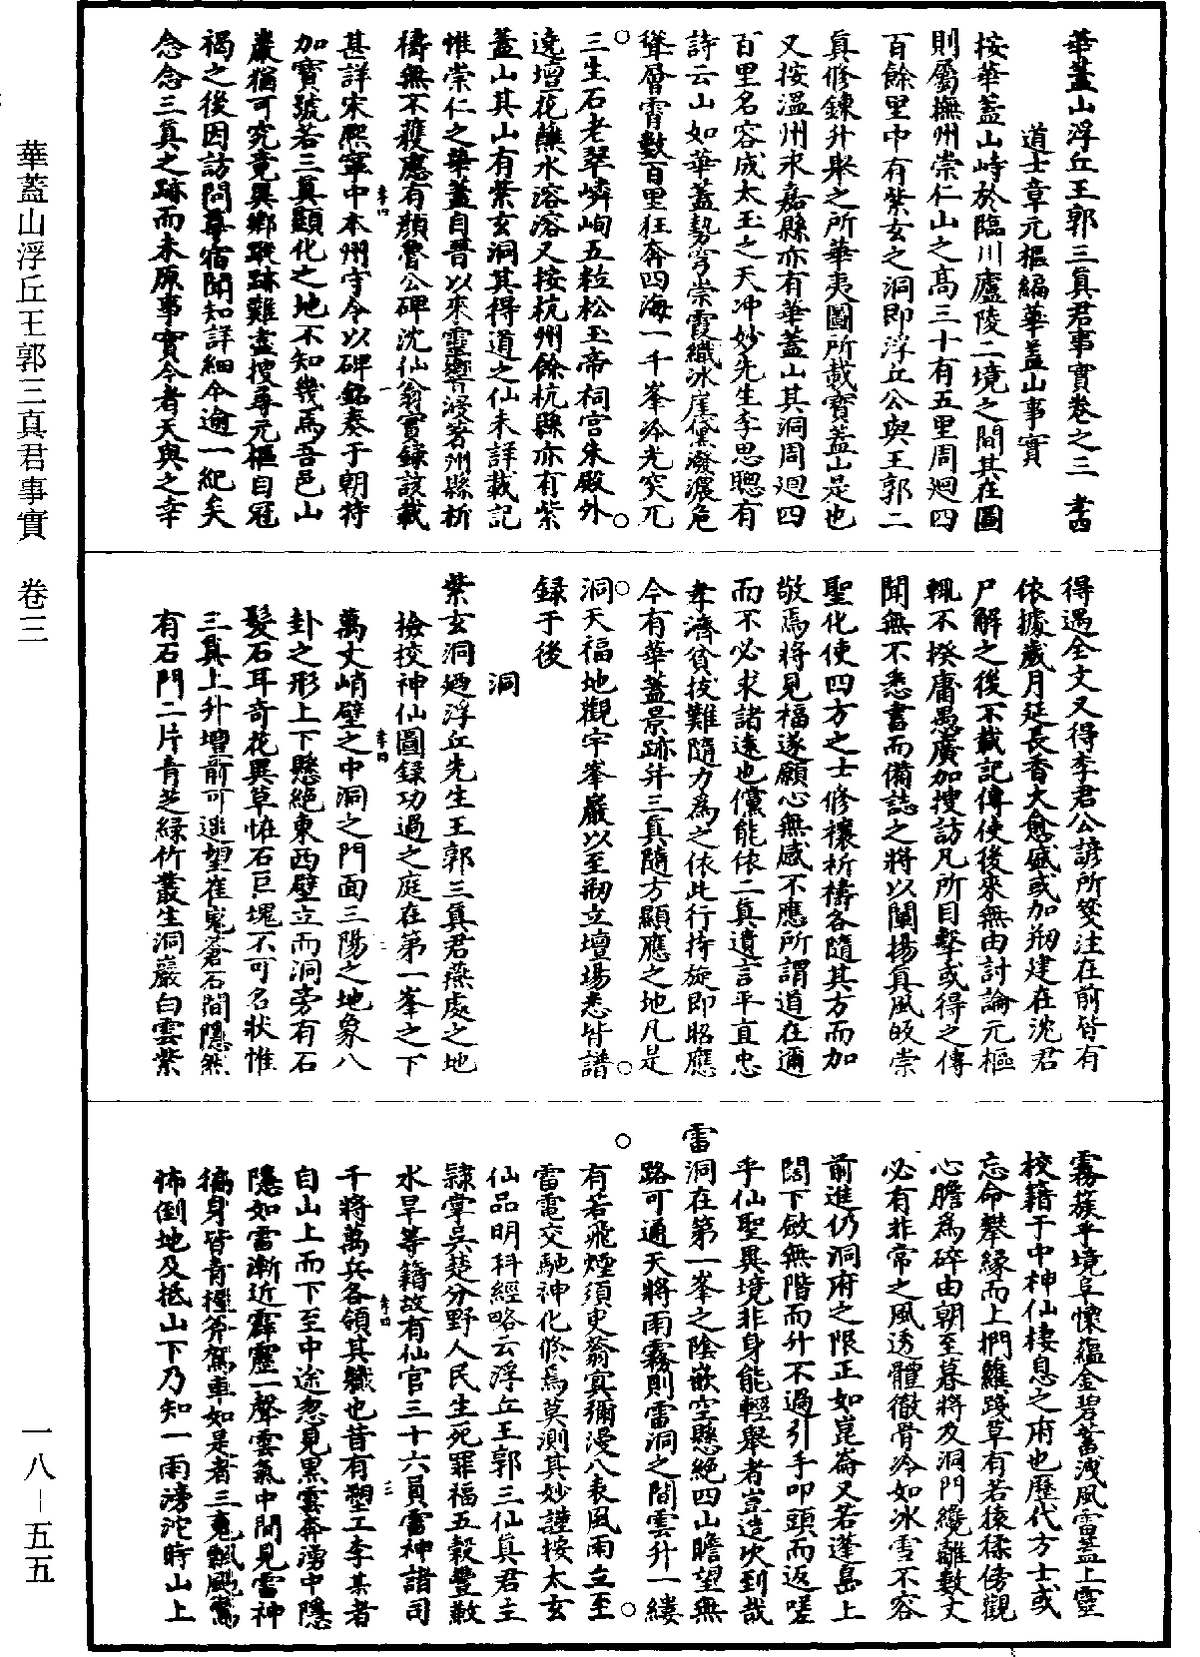 華蓋山浮丘王郭三真君事實 卷三
一八—五五
華蓋山浮丘王郭三眞君事實卷之三 孝四
道士章元樞編華蓋山事實
按華蓋山峙於臨川廬陵二境之間其在圖
則屬撫州崇仁山之髙三十有五里周廻四
百餘里中有紫玄之洞即浮丘公與王郭二
眞修鍊升舉之所華夷圖所載寳蓋山是也
又按溫州永嘉縣亦有華蓋山其洞周迴四
百里名容成太玉之天冲妙先生李思聰有
詩云山如華蓋勢穹崇霞織冰崖黛潑濃危
聳層霄數百里狂奔四海一千峯泠光突兀
三生石老翠嶙峋五粒松玉帝祠宫朱殿外
遶壇花蘸水溶溶又按杭州餘杭縣亦有紫
蓋山其山有紫玄洞其得道之仙未詳載記
惟崇仁之華蓋自晉以來靈響浸著州縣祈
禱無不獲應有顔魯公碑沈仙翁實錄該載
甚詳宋熙寧中本州守令以碑銘奏于朝特
加寳號若三眞顯化之地不知幾焉吾邑山
巖猶可究竟異鄉蹤跡難盡搜尋元樞自冠
褐之後因訪問尊宿聞知詳細今逾一紀矣
念念三眞之跡而未原事實今者天與之幸
得遇全文又得李君公諺所箋注在前皆有
依據歲月延長香火愈盛或加剏建在沈君
尸解之後不載記傳使後來無由討論元樞
輒不揆庸愚廣加搜訪凡所目擊或得之傳
聞無不悉書而備誌之將以闡揚真風敀崇
聖化使四方之士修禳祈禱各隨其方而加
敬焉將見福遂願心無感不應所謂道在邇
而不必求諸遠也儻能依二眞遺言平直忠
孝濟貧拔難隨力爲之依此行持旋即昭應
今有華蓋景跡并三眞隨方顯應之地凡是
洞天福地觀宇峯巖以至剏立壇場悉皆譜
録于後
洞
紫玄洞廼浮丘先生王郭三眞君燕處之地
檢校神仙圖録功過之庭在第一峯之下
萬丈峭壁之中洞之門面三陽之地象八
卦之形上下懸絶東西壁立而洞旁有石
髮石耳奇花異草恠石巨塊不可名狀惟
三眞上升壇前可遥望崔嵬蒼石間隱然
有石門二片青芝緑竹叢生洞巖白雲紫
霧簇乎境阜懷蘊金碧蓄洩風雷蓋上靈
校籍于中神仙棲息之府也歷代方士或
忘命攀緣而上捫蘿踐草有若猿猱傍觀
心膽爲碎由朝至暮將及洞門纔離數丈
必有非常之風透體徹骨冷如冰雪不容
前進仍洞府之限正如崑崙又若蓬島上
闊下斂無階而升不過引手叩頭而返嗟
乎仙聖異境非身能輕舉者豈造次到哉
雷洞在第一峯之陰嵌空懸絶四山瞻望無
路可通天將雨霧則雷洞之間雲升一縷
有若飛煙須臾翁㝠彌漫八表風雨立至
雷電交馳神化倏焉莫測其妙謹按太玄
仙品明科經略云浮丘王郭三仙眞君主
隷掌吳楚分野人民生死罪福五穀豐歉
水旱等籍故有仙官三十六員雷神諸司
千將萬兵各領其職也昔有塑工李某者
自山上而下至中途忽見黑雲奔湧中隱
隱如雷漸近霹靂一聲雲氣中間見雷神
徧身皆青極斧駕車如是者三竟飄颺驚
怖倒地及抵山下乃知一雨滂沱時山上
孝四
二
孝四
三